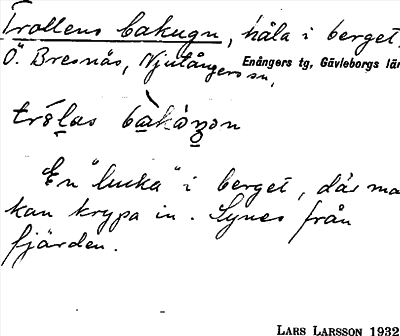 Trollens bakugn, håla i berget.
Ö. Bresnäs, Njutångers sn,
Enångers tg, Gävleborgs län
En "lucka" i berget, där ma
kan krypa in. Synes från
fjärden.
LARS LARSSON 1932